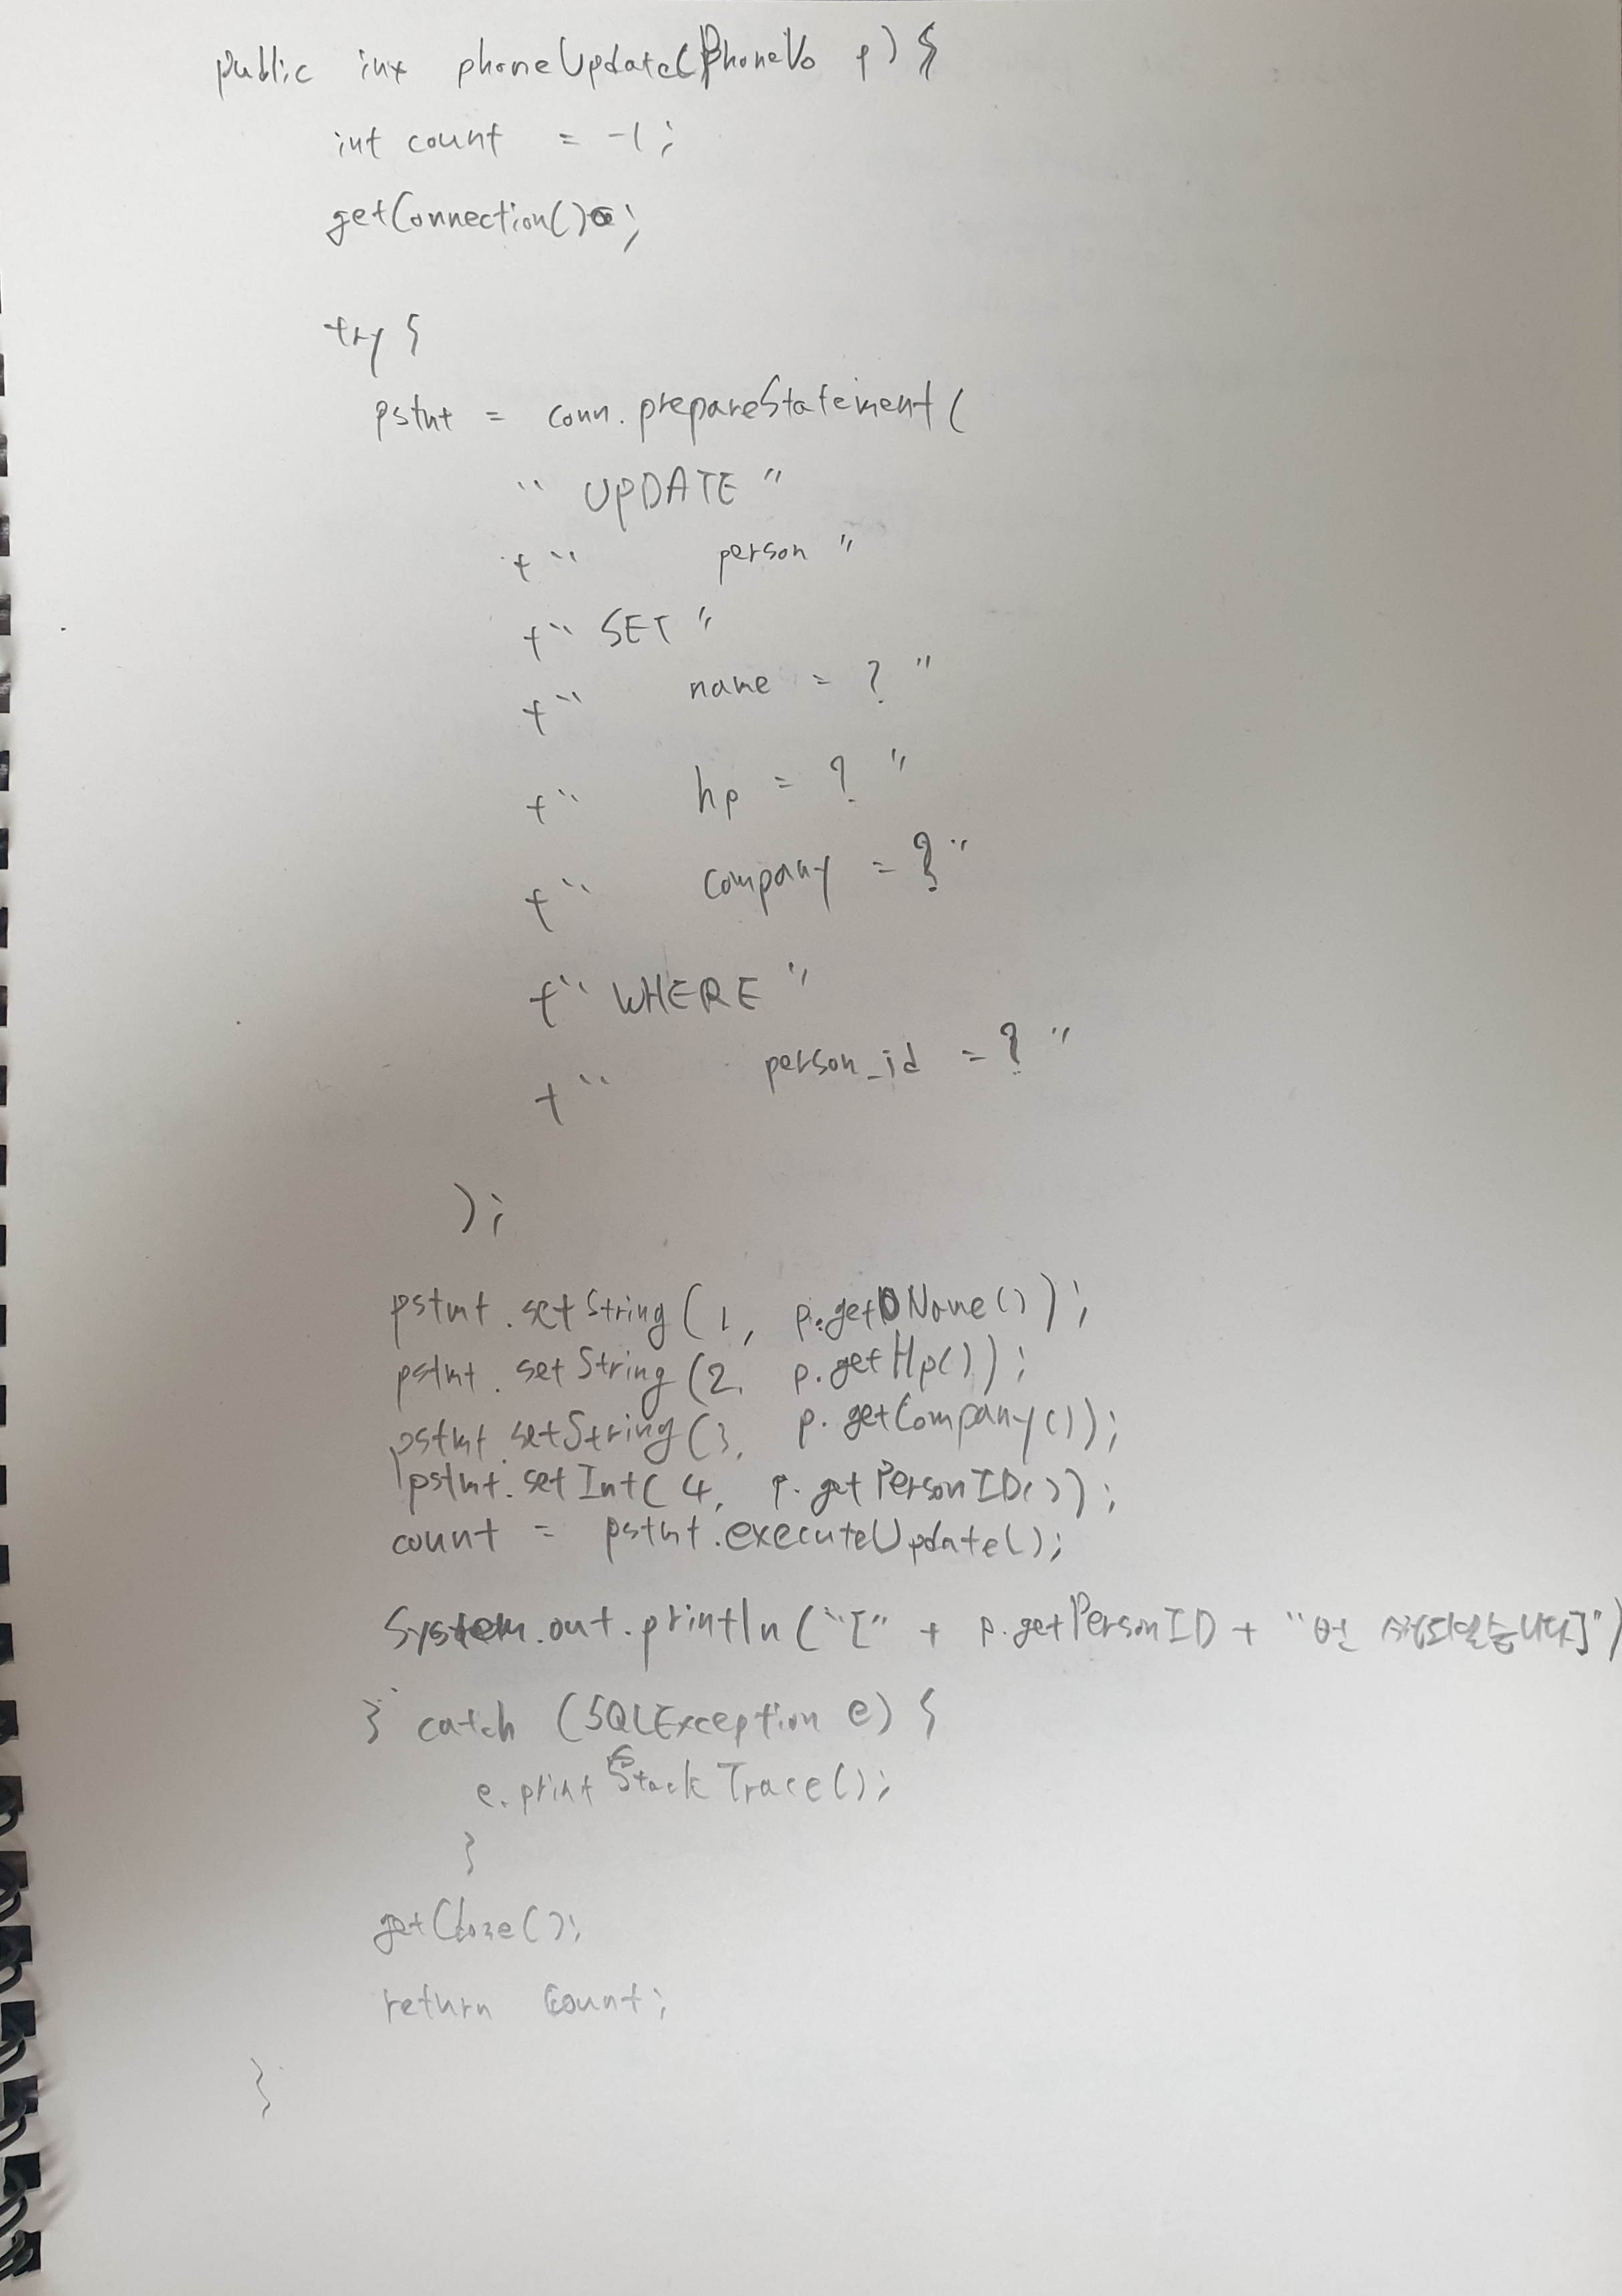 public int phoneUpdate(PhoneVo p) {
int count = -1;
getConnection();
try {
pstmt = conn.prepareStatement(
" UPDATE "
+" person "
+" SET "
+" name = ? "
+" hp = ? "
+" company = ? "
+" WHERE "
+" person_id = ? "
);
pstmt.setString(1, p.getName());
pstmt.setString(2, p.getHp());
pstmt.setString(3, p.getCompany());
pstmt.setInt(4, p.getPersonID());
count = pstmt.executeUpdate();
System.out.println("[" + p.getPersonID + "번 되었습니다]")
} catch (SQLException e) {
e.printStackTrace();
}
getClose();
return count;
}